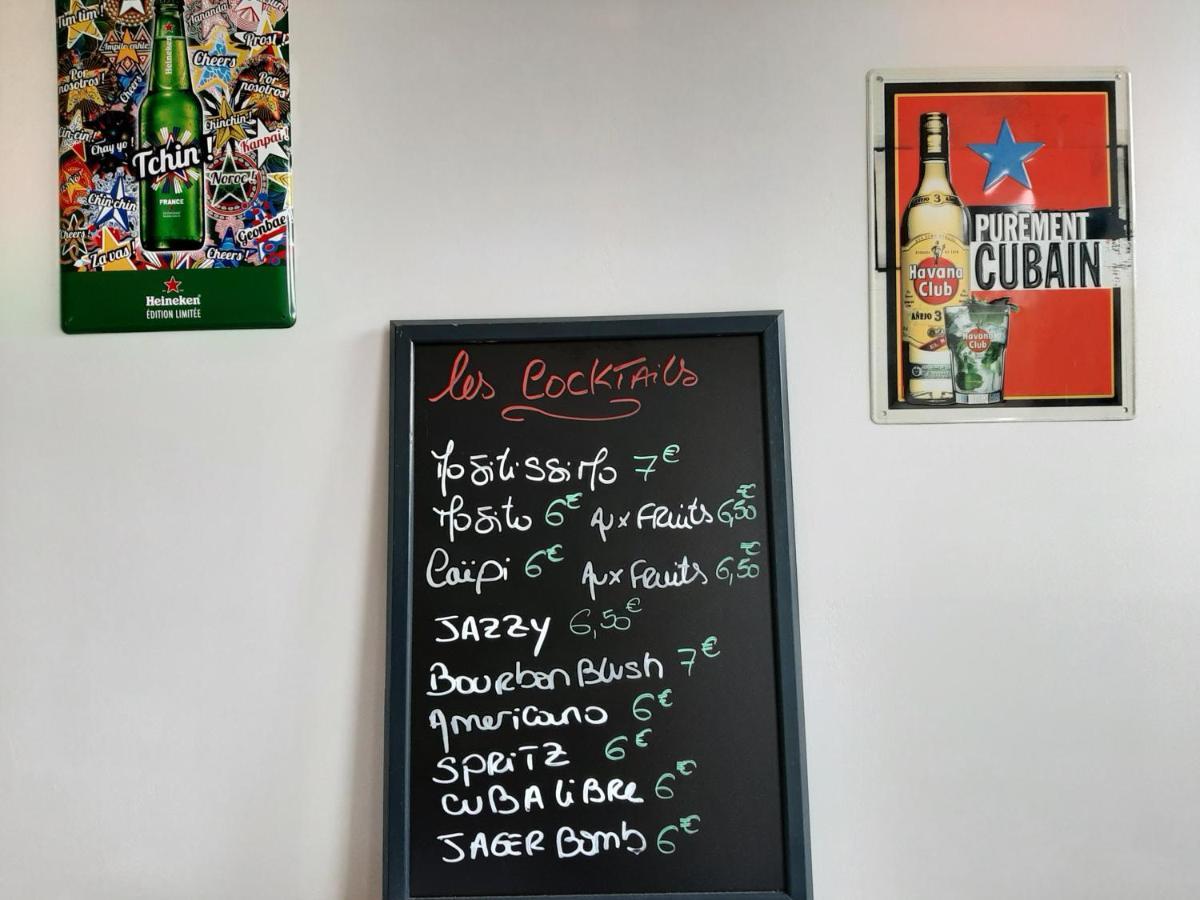 Tim tim !
Ampile enkle
Nanandai
Prost !
Cheers
Por nosotros !
Cheers
Por nosotros !
Chinchin !
Cin cin !
Chay yo !
Kanpai !
Heineken
Tchin !
FRANCE
Noroc !
Chin chin
Cheers !
Za vas !
Cheers !
Geonbae
Heineken
ÉDITION LIMITÉE
PUREMENT
CUBAIN
AÑEJO 3
Havana
Club
AÑEJO 3
Havana
Club
les COCKTAILS
Mojitissimo 7€
Mojito 6€ Aux Fruits 6,50€
Caïpi 6€ Aux Fruits 6,50€
JAZZY 6,50€
Bourbon Blush 7€
Americano 6€
SPRITZ 6€
CUBA LiBRE 6€
JAGER Bomb 6€